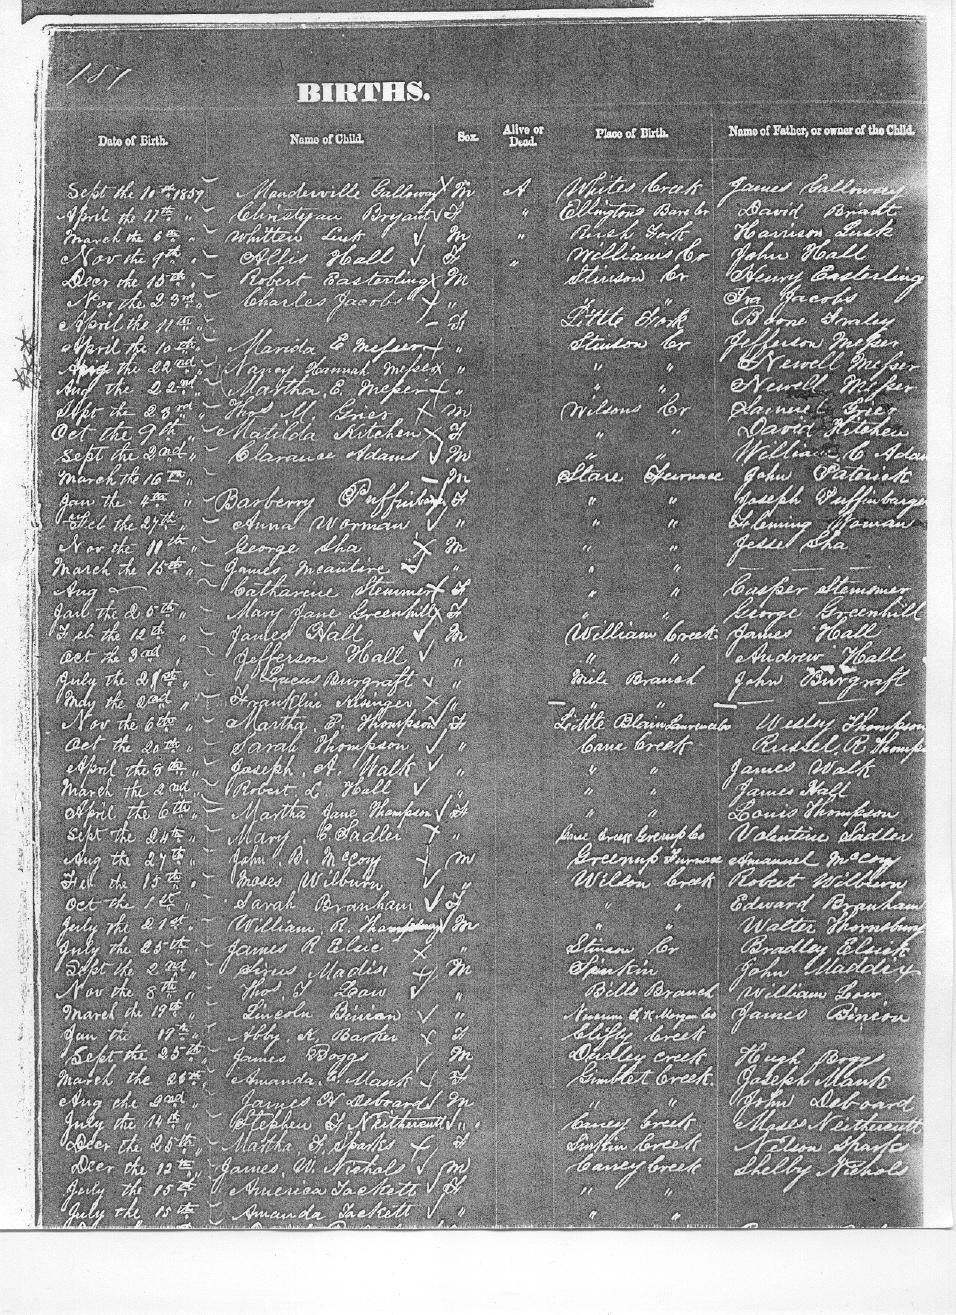 187
BIRTHS.
Date of Birth. Name of Child. Sex. Alive or Dead. Place of Birth. Name of Father, or owner of the Child.
Sept the 10th 1859 Manderville Galloway M A Whites Creek James Galloway
April the 17th " Christyan Bryant F " Ellingtons Bars Cr David Briant
March the 6th " Whitten Lusk M " Bush Fork Harrison Lusk
Nov the 9th " Allis Hall F " Williams Co John Hall
Decr the 15th " Robert Easterling M Stinson Cr Henry Easterling
Nov the 23rd " Charles Jacobs " " " Ira Jacobs
April the 11th " F Little Fork Boone Fraley
April the 10th " E Messer " Stinson Cr Jefferson Messer
Aug the 22nd " Nancy Hannah Messer " " " Newell Messer
Aug the 22nd " Martha E. Messer " " " Newell Messer
Sept the 23rd " Thos M. Grier M Wilsons Cr Grier
Oct the 9th " Matilda Kitchen F " " David Kitchen
Sept the 2nd " Clarance Adams M " " William C Adam
March the 16th " M Stare Furnace John Patrick
Jan the 4th " Barberry F " " Joseph Puffinbarger
Feb the 27th " Anna Worman " " " Fleming Woman
Nov the 11th " George Sha M " " Jesse Sha
March the 15th " James " " "
Aug Catharine Stemmer F Casper Stemomer
Jan the 25th " Mary Jane Greenhill F " " George Greenhill
Feb the 12th " James Hall M William Creek James Hall
Oct the 3rd " Jefferson Hall " " " Andrew Hall
July the 21st " Lucus Burgraft " Mile Branch John Burgraft
May the 2nd " Franklin Kisinger " " "
Nov the 6th " Martha. E. Thompson F Little Blain Lawrence Co Wesley Thompson
Oct the 20th " Sarah Thompson " Cane Creek Russel, R Thomps
April the 8th " Joseph. A. Walk " " " James Walk
March the 2nd " Robert. L. Hall " " " James Hall
April the 6th " Martha Jane Thompson F " " Louis Thompson
Sept the 24th " Mary. E Sadler " Greenup Co Valentine Sadler
Aug the 27th " John. B. McCoy M Greenup Furnace Amannel McCoy
Feb the 15th " Moses Wilburn " Wilson Creek Robert Wilburn
Oct the 1st " Sarah Branham F " " Edward Branham
July the 21st " William. R. M " " Walter Thornsbury
July the 25th " James R Elsic " Stinson Cr Bradley Elsick
Sept the 2nd " Sirus Madix M Sinkin John Maddix
Nov the 8th " Thos. T Loaw " Bills Branch William Low.
March the 19th " Lincoln Binion " Morgan Co James Binion
Jan the 17th " Abby. A. Barker F Clifty Creek
Sept the 25th " James Boggs M Dudley creek Hugh Boggs
March the 20th " Amanda. E. Mauk F Gimblet Creek. Joseph Mauk
Aug the 2nd " James W Deboards M " " John Deboard
July the 14th " Stephen T Neithercutt " Caney Creek Moses Neithercutt
Decr the 25th " Martha F. Sparks F Sinkin Creek Nelson Sparks
Decr the 12th " James. W. Nichols M Caney Creek Shelby Nichols
July the 15th " America Tackett F " "
July the 15th " Amanda Tackett " " "